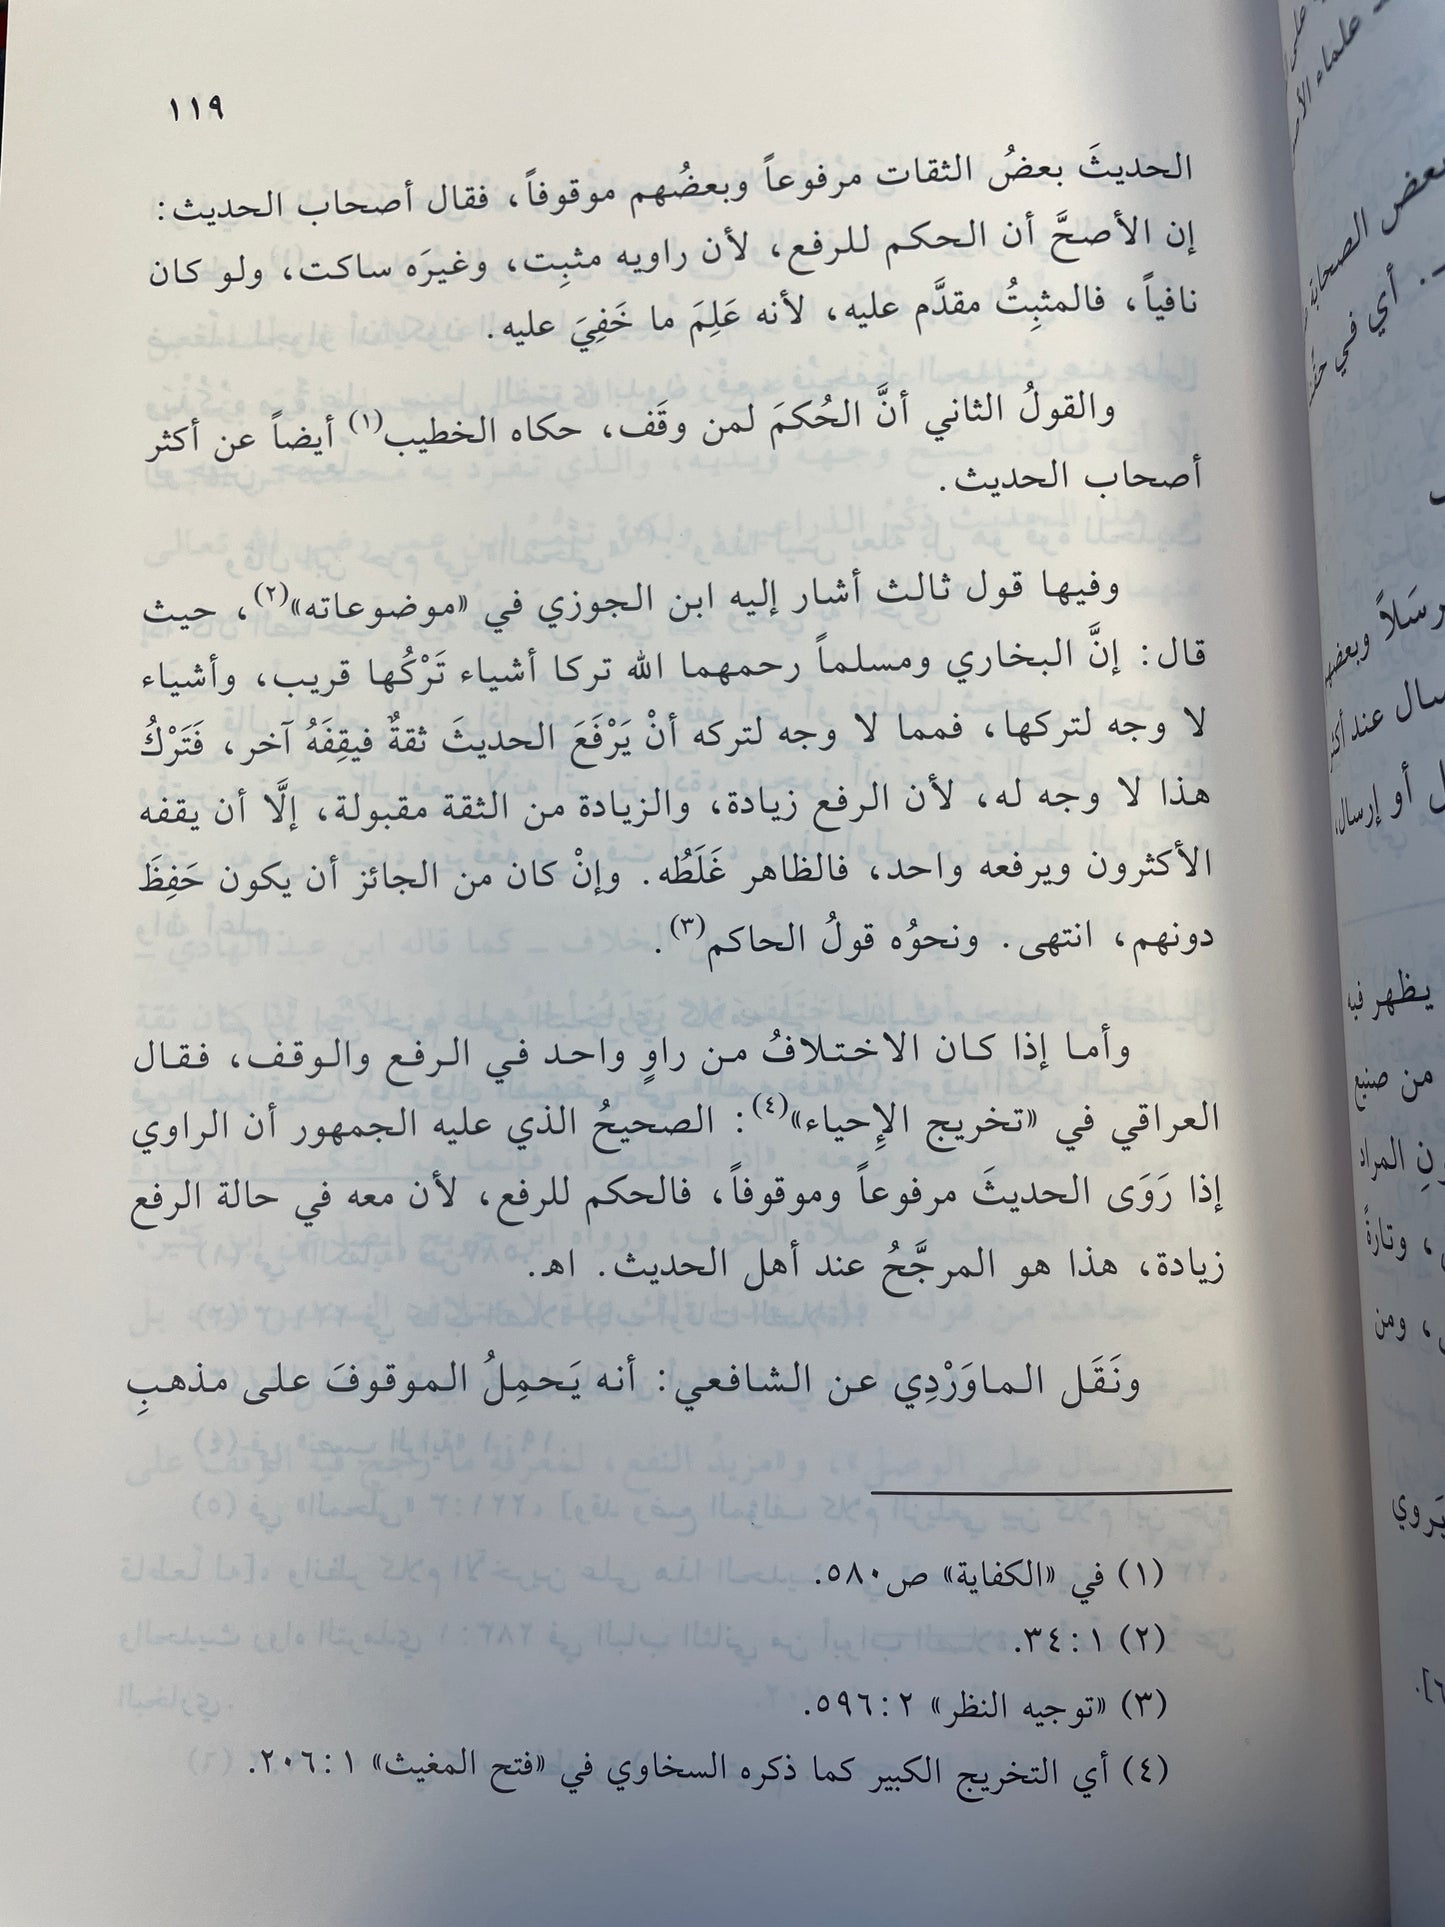 ١١٩
الحديثَ بعضُ الثقات مرفوعاً وبعضُهم موقوفاً، فقال أصحاب الحديث:
إن الأصحَّ أن الحكم للرفع، لأن راويه مثبِت، وغيرَه ساكت، ولو كان
نافياً، فالمثبِتُ مقدَّم عليه، لأنه عَلِمَ ما خَفِيَ عليه.
والقولُ الثاني أنَّ الحُكمَ لمن وقَف، حكاه الخطيب(١) أيضاً عن أكثر
أصحاب الحديث.
وفيها قول ثالث أشار إليه ابن الجوزي في «موضوعاته»(٢)، حيث
قال: إنَّ البخاري ومسلماً رحمهما الله تركا أشياء تَرْكُها قريب، وأشياء
لا وجه لتركها، فمما لا وجه لتركه أنْ يَرْفَعَ الحديثَ ثقةٌ فيقِفَهُ آخر، فَتَرْكُ
هذا لا وجه له، لأن الرفع زيادة، والزيادة من الثقة مقبولة، إلَّا أن يقفه
الأكثرون ويرفعه واحد، فالظاهر غَلَطُه. وإنْ كان من الجائز أن يكون حَفِظَ
دونهم، انتهى. ونحوُه قولُ الحاكم(٣).
وأما إذا كان الاختلافُ من راوٍ واحد في الرفع والوقف، فقال
العراقي في «تخريج الإِحياء»(٤): الصحيحُ الذي عليه الجمهور أن الراوي
إذا رَوَى الحديثَ مرفوعاً وموقوفاً، فالحكم للرفع، لأن معه في حالة الرفع
زيادة، هذا هو المرجَّحُ عند أهل الحديث. اهـ.
ونَقَل الماوَرْدِي عن الشافعي: أنه يَحمِلُ الموقوفَ على مذهبِ
(١) في «الكفاية» ص٥٨٠.
(٢) ١ : ٣٤.
(٣) «توجيه النظر» ٢ : ٥٩٦.
(٤) أي التخريج الكبير كما ذكره السخاوي في «فتح المغيث» ١ : ٢٠٦.